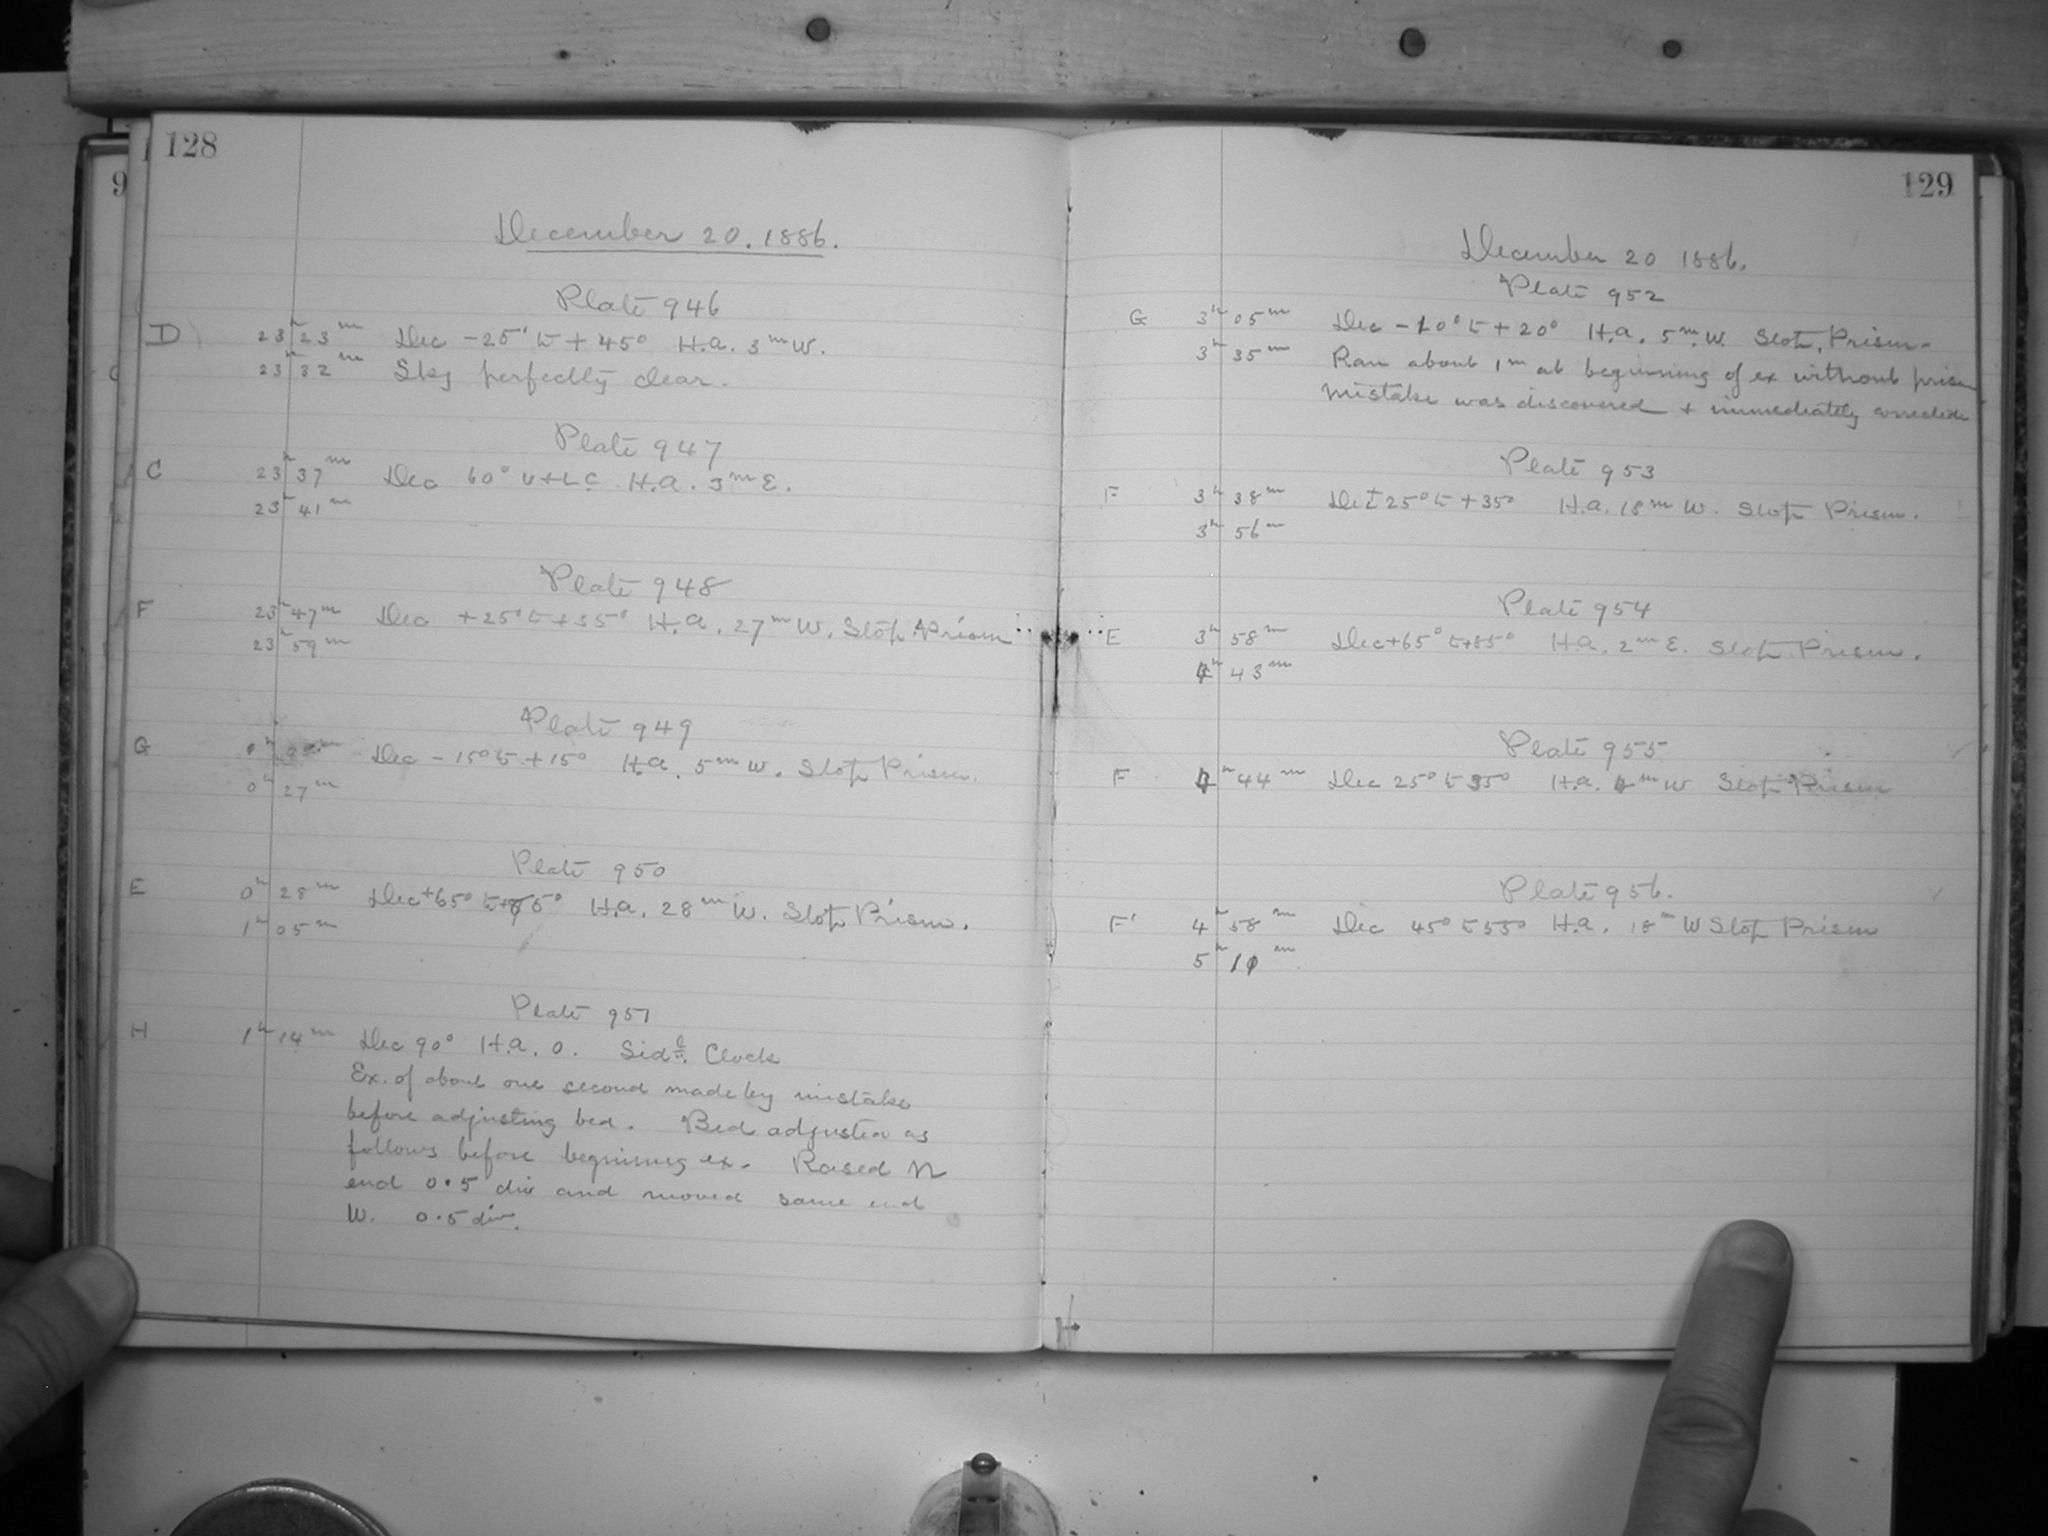 128
9
December 20. 1886.
Plate 946
D 23h 23m Dec -25° to +45° H.a. 3m W.
23h 32m Sky perfectly clear.
Plate 947
C 23h 37m Dec 60° U+LC. H.a. 3m E.
23h 41m
Plate 948
F 23h 47m Dec +25° to +35° H.a. 27m W. Stop Prism
23h 59m
Plate 949
G 0h Dec -15° to +15° H.a. 5m W. Stop Prism.
0h 27m
Plate 950
E 0h 28m Dec +65° to +85° H.a. 28m W. Stop Prism.
1h 05m
Plate 951
H 1h 14m Dec 90° H.a. 0. Sidl. Clock
Ex. of about one second made by mistake
before adjusting bed. Bed adjusted as
follows before beginning ex. Raised N
end 0.5 div and moved same end
W. 0.5 div.
129
December 20 1886.
Plate 952
G 3h 05m Dec -10° to +20° H.a. 5m W. Stop, Prism.
3h 35m Ran about 1m at beginning of ex without prism
mistake was discovered + immediately corrected
Plate 953
F 3h 38m Dec +25° to +35° H.a. 18m W. Stop Prism.
3h 56m
Plate 954
E 3h 58m Dec +65° to +85° H.a. 2m E. Stop Prism.
4h 43m
Plate 955
F 4h 44m Dec 25° to 35° H.a. m W Stop Prism
Plate 956.
F' 4h 58m Dec 45° to 55° H.a. 18m W Stop Prism
5h 10m